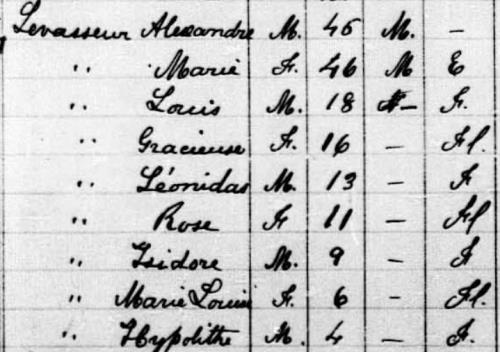 Levasseur Alexandre M. 45 M. —
" Marie F. 46 M E
" Louis M. 18 — F.
" Gracieuse F. 16 — Fl.
" Léonidas M. 13 — F
" Rose F 11 — Fl
" Isidore M. 9 — F
" Marie Louise F. 6 — Fl.
" Hypolithe M. 4 — F.